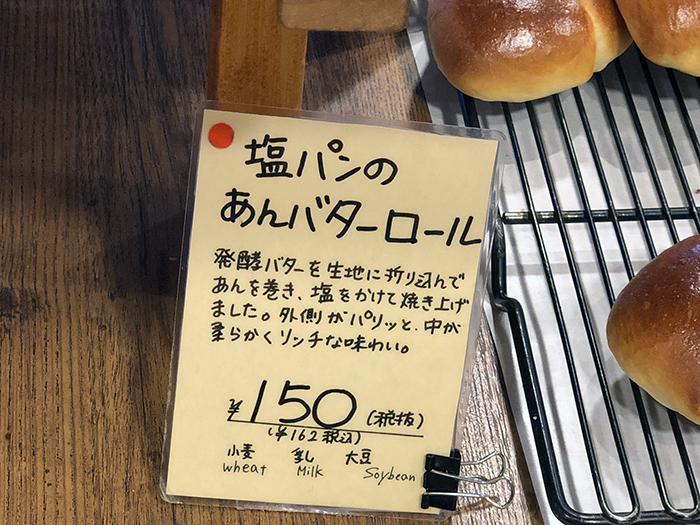 塩パンの
あんバターロール
発酵バターを生地に折り込んで
あんを巻き、塩をかけて焼き上げ
ました。外側がパリッと、中が
柔らかくリンチな味わい。
¥150(税抜)
(¥162税込)
小麦 乳 大豆
wheat Milk Soybean